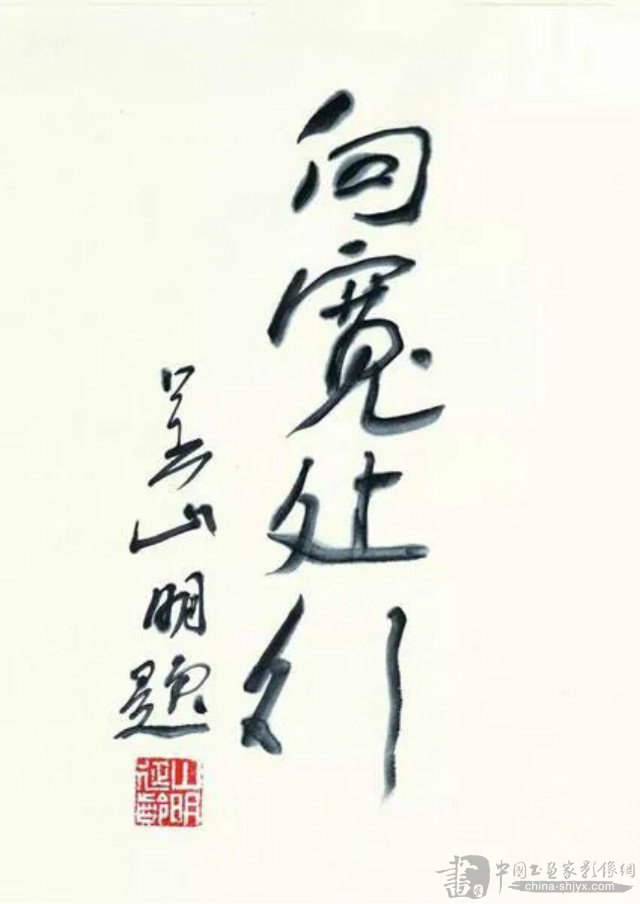 向宽处行
吴山明题
山明
書 中国书画家影像網
china-shjyx.com